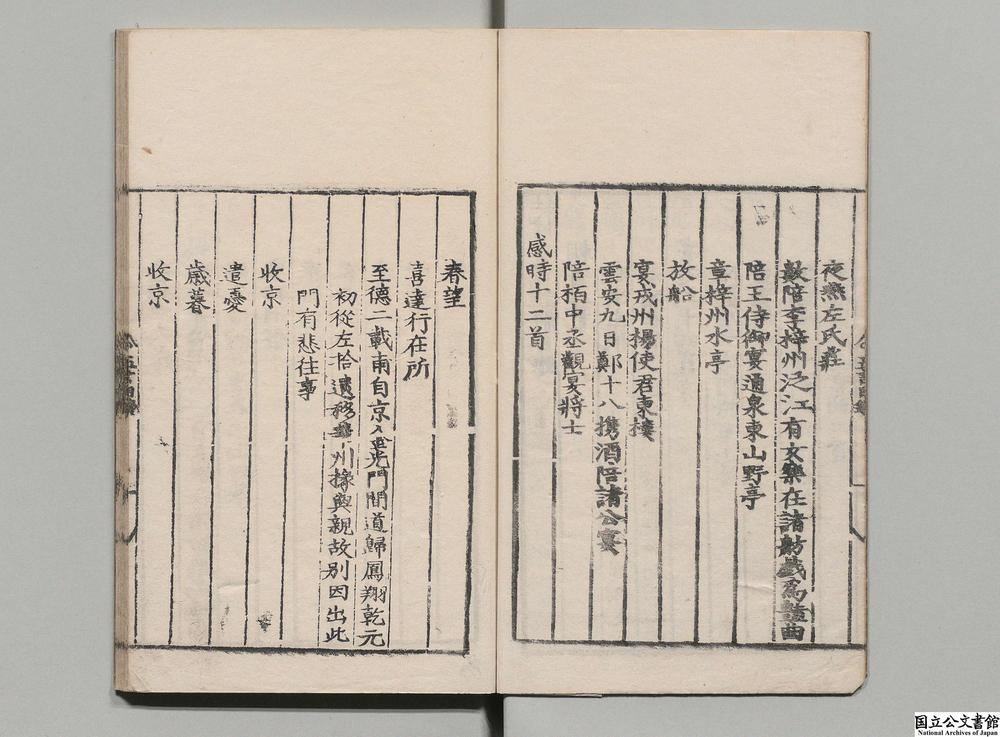 夜燕左氏莊
數陪李梓州泛江有女樂在諸舫戲爲豔曲
陪王侍御宴通泉東山野亭
章梓州水亭
放船
宴戎州楊使君東樓
雲安九日鄭十八携酒陪諸公宴
陪栢中丞觀宴將士
感時十二首
春望
喜達行在所
至德二載甫自京金光門間道歸鳳翔乾元
初從左拾遺移華州掾與親故別因出此
門有悲往事
收京
遣憂
歲暮
收京
国立公文書館
National Archives of Japan